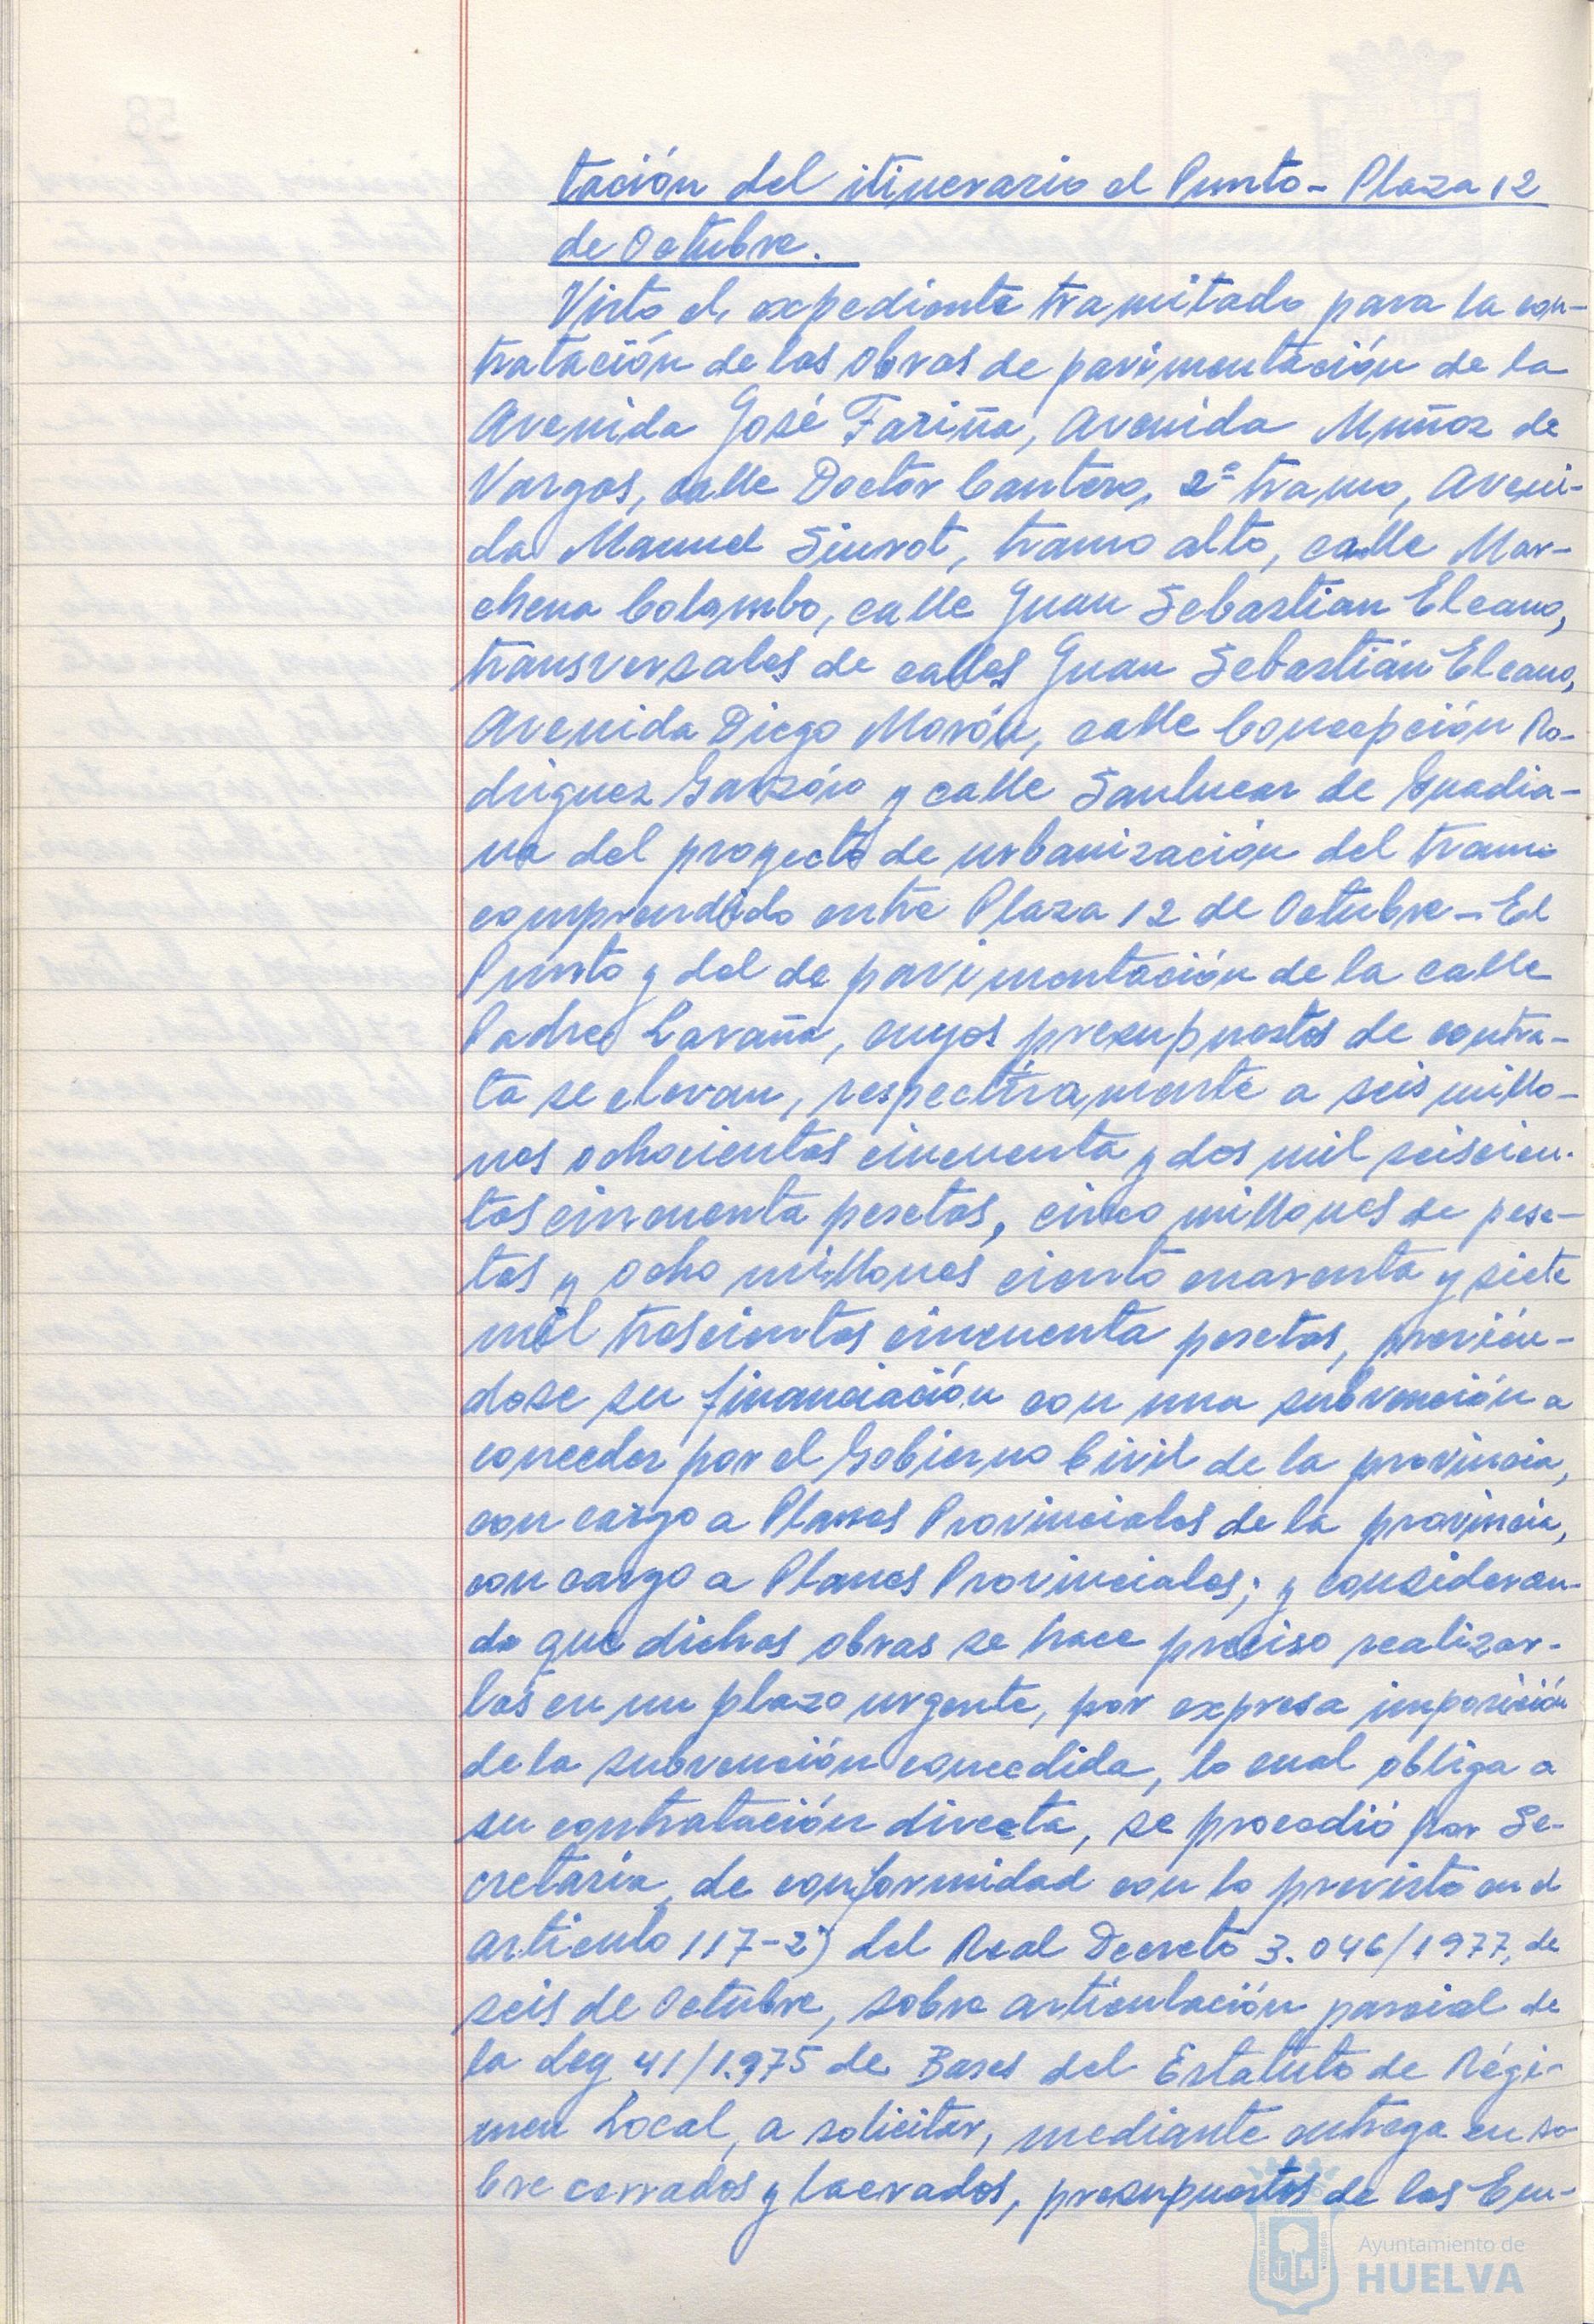 tación del itinerario el Punto - Plaza 12
de Octubre.
Visto el expediente tramitado para la con-
tratación de las obras de pavimentación de la
Avenida José Fariña, Avenida Muñoz de
Vargas, calle Doctor Cantero, 2º tramo, Aveni-
da Manuel Siurot, tramo alto, calle Mar-
chena Colombo, calle Juan Sebastian Elcano,
transversales de calles Juan Sebastián Elcano,
Avenida Diego Morón, calle Concepción Ro-
driguez Garzón y calle Sanlucar de Guadia-
na del proyecto de urbanización del tramo
comprendido entre Plaza 12 de Octubre - El
Punto y del de pavimentación de la calle
Padre Laraña, cuyos presupuestos de contra-
ta se elevan, respectivamente a seis millo-
nes ochocientas cincuenta y dos mil seiscien-
tas cincuenta pesetas, cinco millones de pese-
tas y ocho millones ciento cuarenta y siete
mil trescientas cincuenta pesetas, previén-
dose su financiación con una subvención a
conceder por el Gobierno Civil de la provincia,
con cargo a Planes Provinciales de la provincia,
con cargo a Planes Provinciales; y consideran-
do que dichas obras se hace preciso realizar-
las en un plazo urgente, por expresa imposición
de la subvención concedida, lo cual obliga a
su contratación directa, se procedió por Se-
cretaria, de conformidad con lo previsto en el
articulo 117-2) del Real Decreto 3.046/1977, de
seis de Octubre, sobre articulación parcial de
la Ley 41/1.975 de Bases del Estatuto de Régi-
men Local, a solicitar, mediante entrega en so
bre cerrados y lacrados, presupuestos de las Em-
Ayuntamiento de
HUELVA